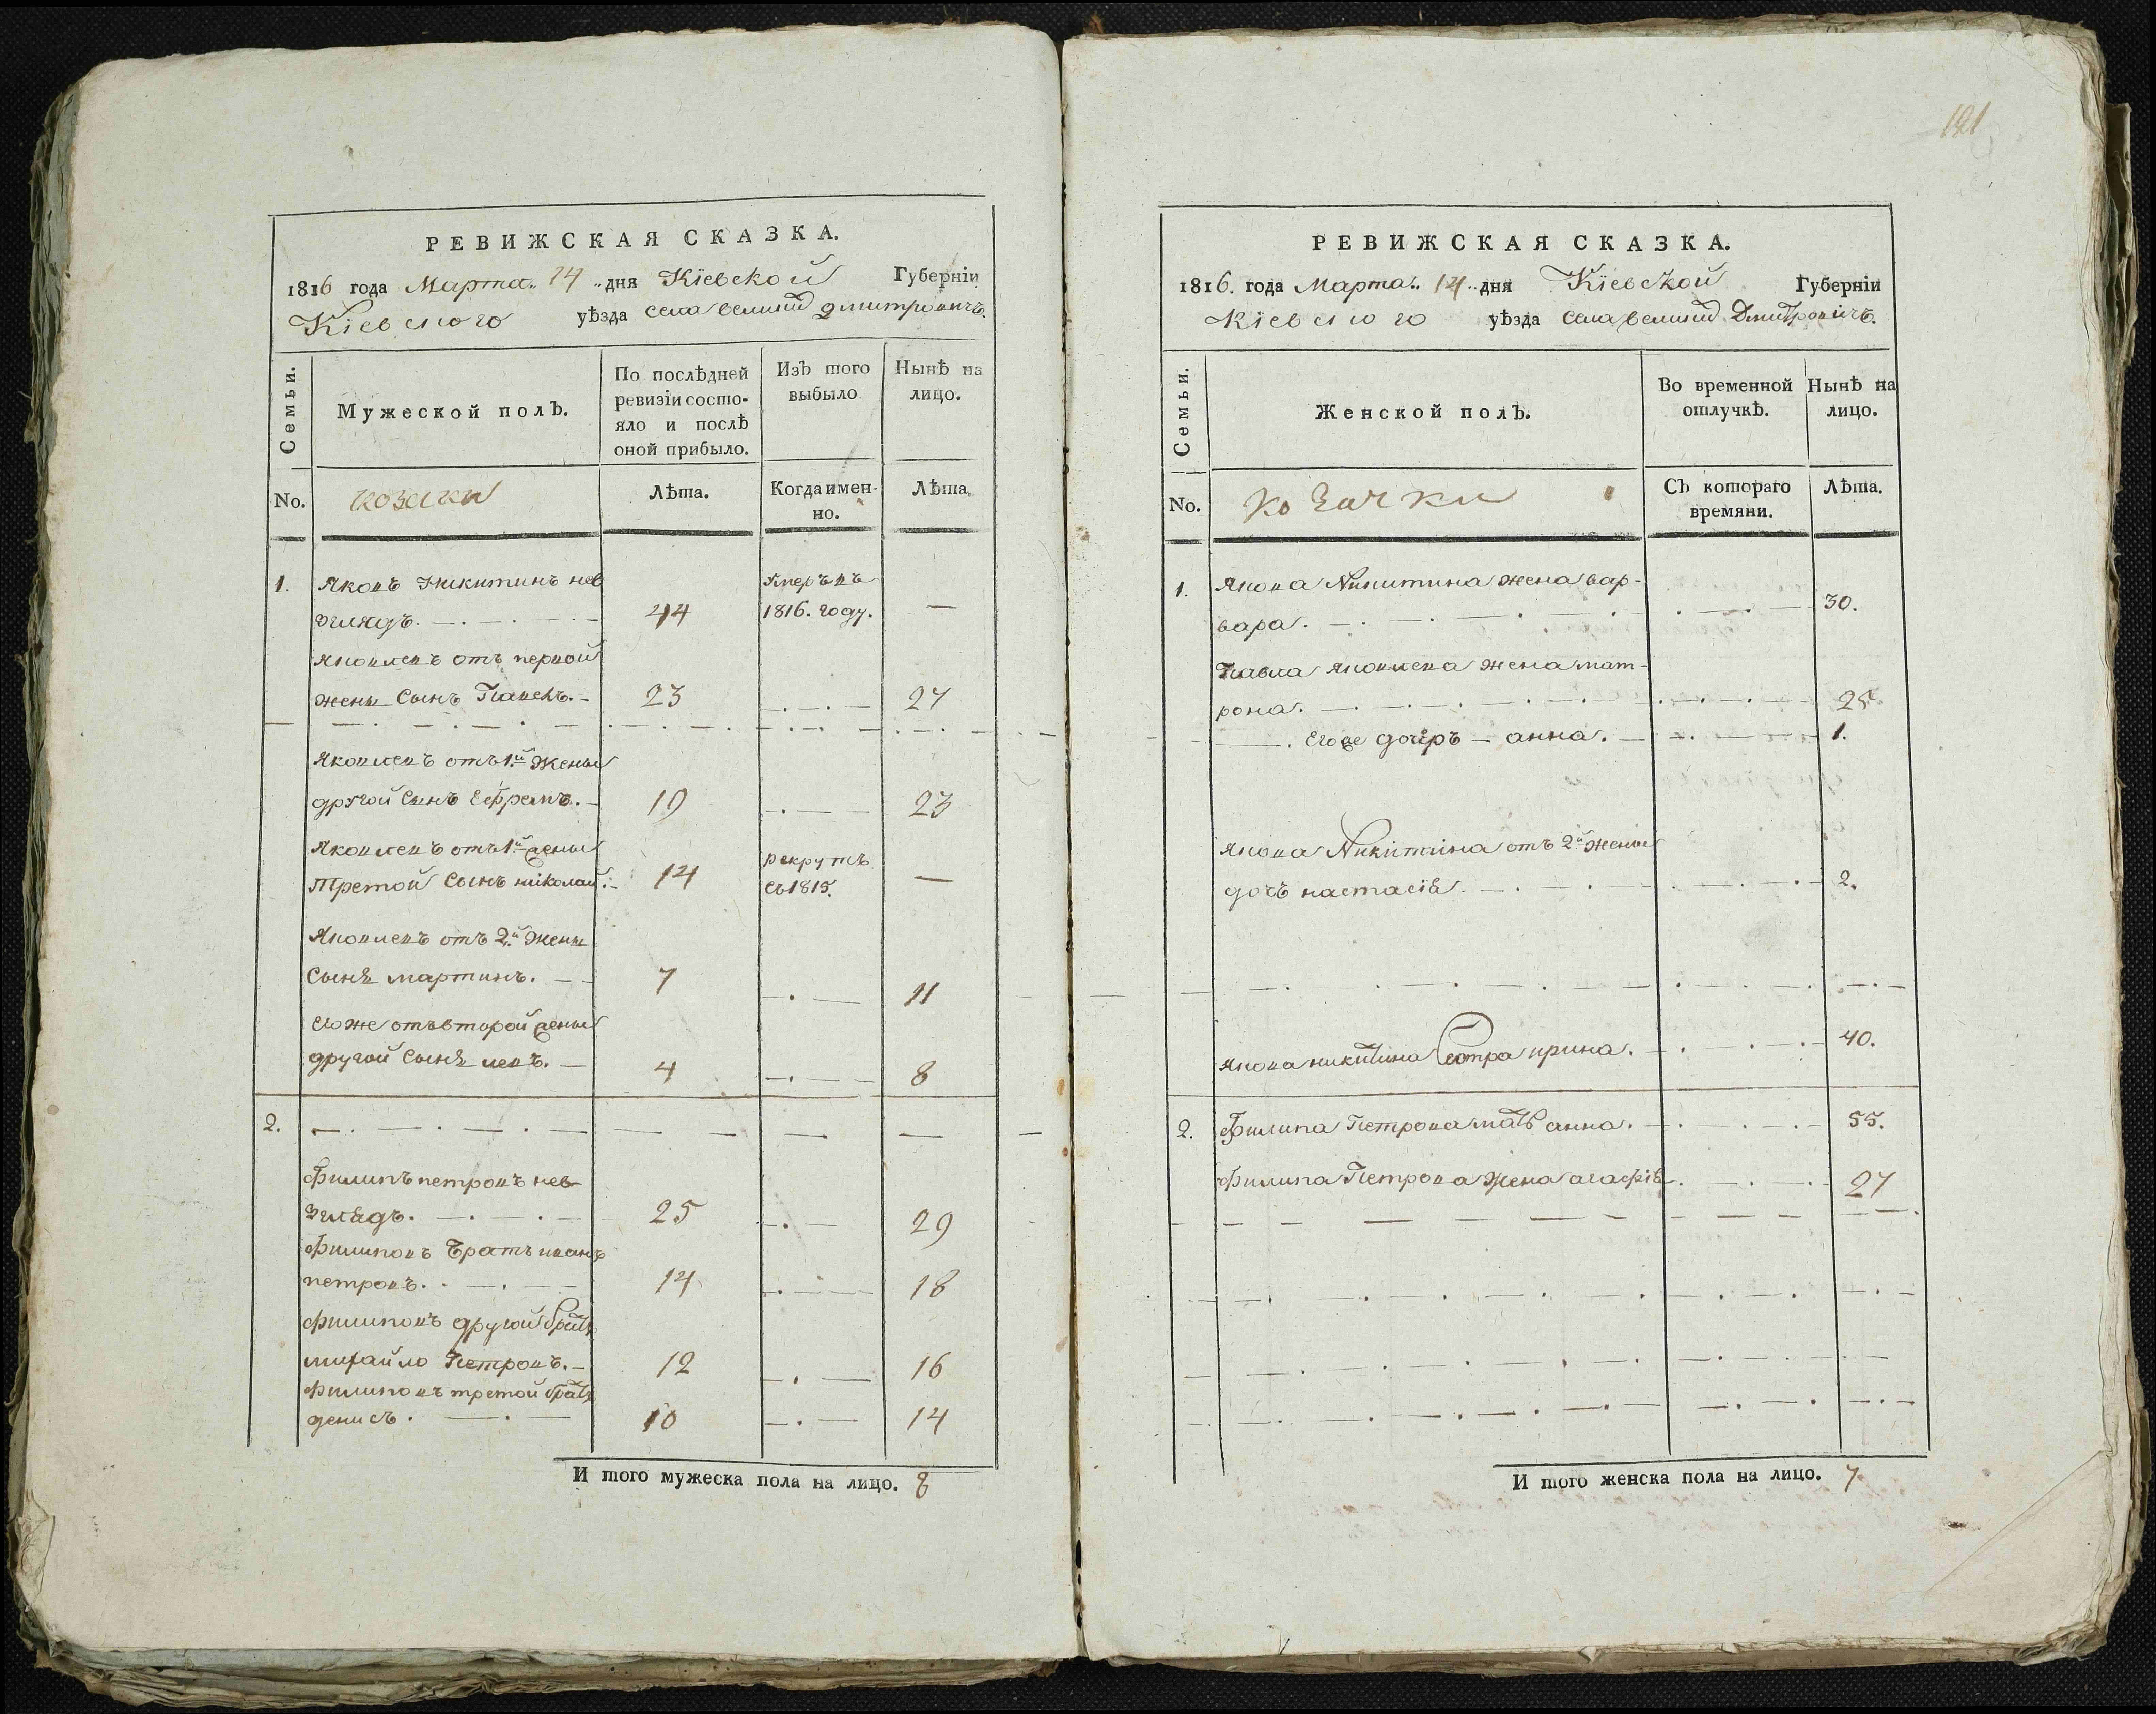 181
РЕВИЖСКАЯ СКАЗКА.
1816 года Марта 14 дня Кіевской Губерніи
Кіевского уѣзда села великихъ дмитровичъ.
Семьи.
Мужеской полъ.
По послѣдней ревизіи состо-
яло и послѣ
оной прибыло.
Изъ того
выбыло
Нынѣ на
лицо.
No. козаки Лѣта. Когда имен-
но.
Лѣта.
1. Яковъ Никитинъ нев умеръ въ
зглядъ. 44 1816. году. —
Яковлевъ отъ первой
жены Сынъ Павелъ. 23 27
Яковлевъ отъ 1й Жены
другой Сынъ Ефремъ. 19 23
Яковлевъ отъ 1й жены рекрутъ
Третой Сынъ николай 14 съ 1815. —
Яковлевъ отъ 2й Жены
Сынъ мартинъ. 7 11
его же отъ второй жены
другой Сынъ левъ. 4 8
2.
Филипъ петровъ нев
зглядъ. 25 29
Филиповъ Братъ иванъ
петровъ. 14 18
Филиповъ другой братъ
михайло Петровъ. 12 16
Филиповъ третой братъ
денисъ. 10 14
И того мужеска пола на лицо. 8
РЕВИЖСКАЯ СКАЗКА.
1816. года Марта 14 дня Кіевской Губерніи
Кіевского уѣзда села великихъ Дмитровичъ.
Семьи.
Женской полъ.
Во временной
отлучкѣ.
Нынѣ на
лицо.
No. козачки Съ котораго
времяни.
Лѣта.
1. Якова Никитина жена вар-
вара. 30.
Павла яковлева жена мат-
рона. 25
его же дочеръ анна. 1.
Якова Никитина отъ 2й жены
дочъ настасія 2.
Якова никитина Сестра ирина. 40.
2. Филипа Петрова мать анна. 55.
Филипа Петрова Жена агафія 27
И того женска пола на лицо. 7